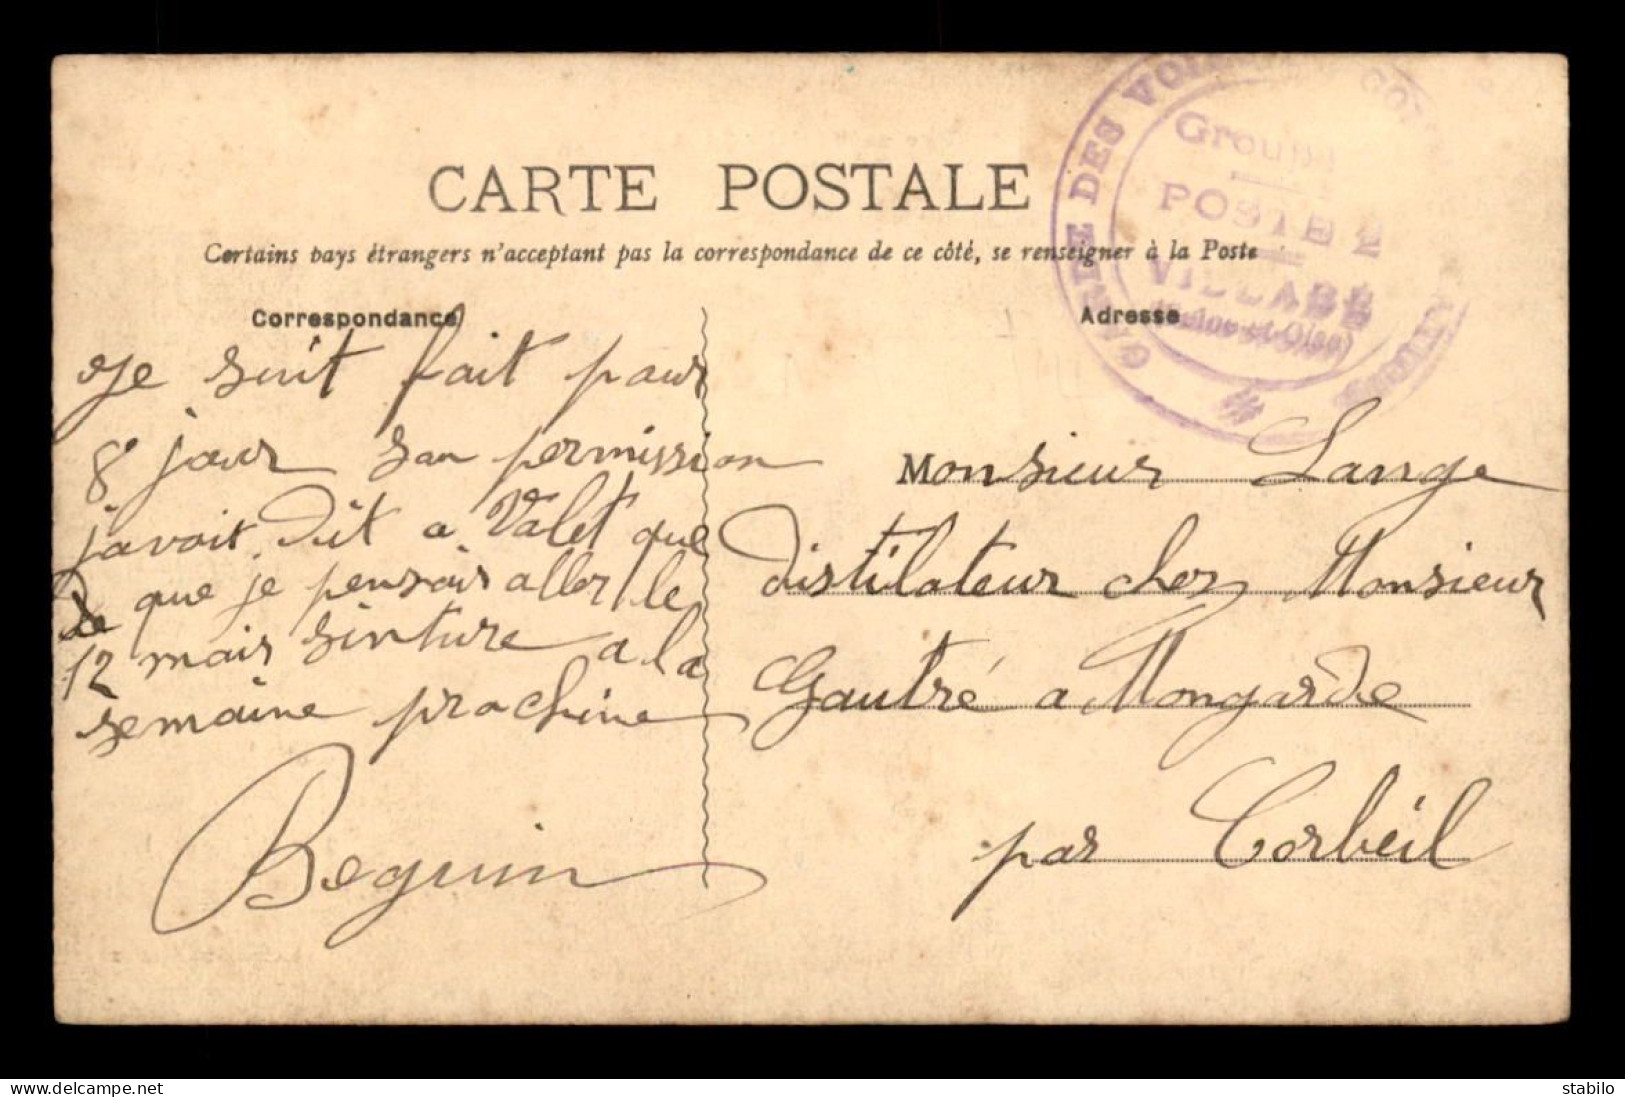 CARTE POSTALE
Certains pays étrangers n'acceptant pas la correspondance de ce côté, se renseigner à la Poste
Correspondance
Adresse
GARDE DES VOIES
Groupe
POSTE 2
VILLABÉ
(Seine-et-Oise)
Je suit fait pour
8 jour san permission
javait dit a Valet que
de que je pensais aller le
12 mais sinture a la
semaine prochine
Beguin
Monsieur Lange
distilateur chez Monsieur
Gautré a Mongarde
par Corbeil
stabilo
www.delcampe.net